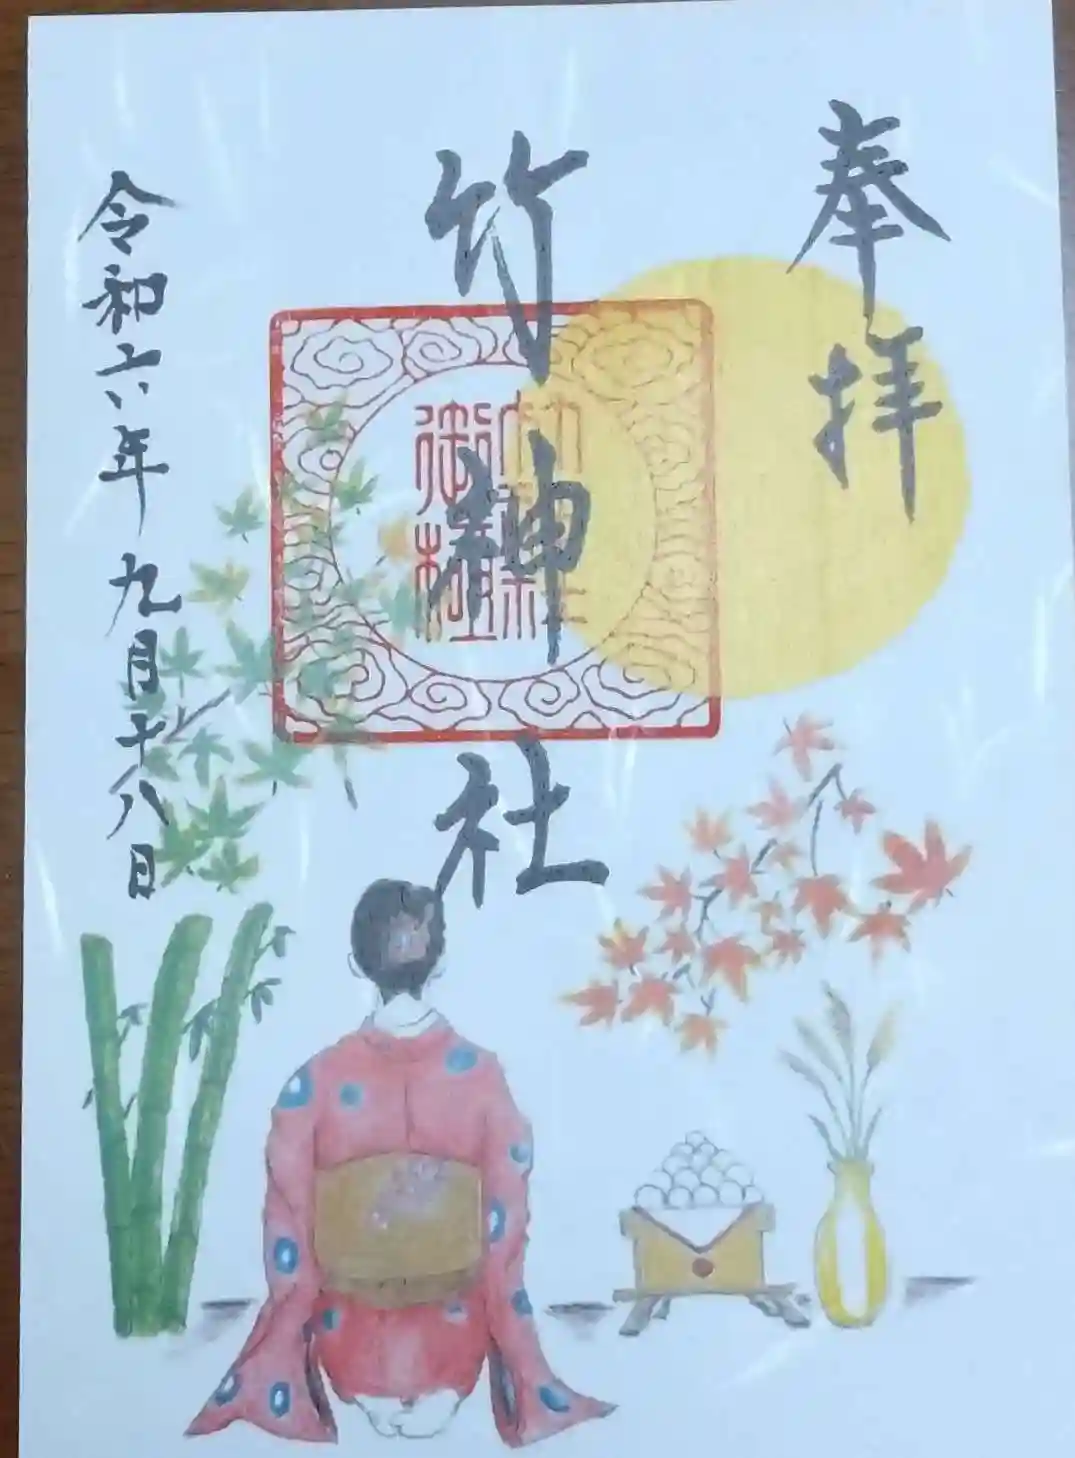 奉拝
竹神社
竹神社御璽
令和六年九月十八日